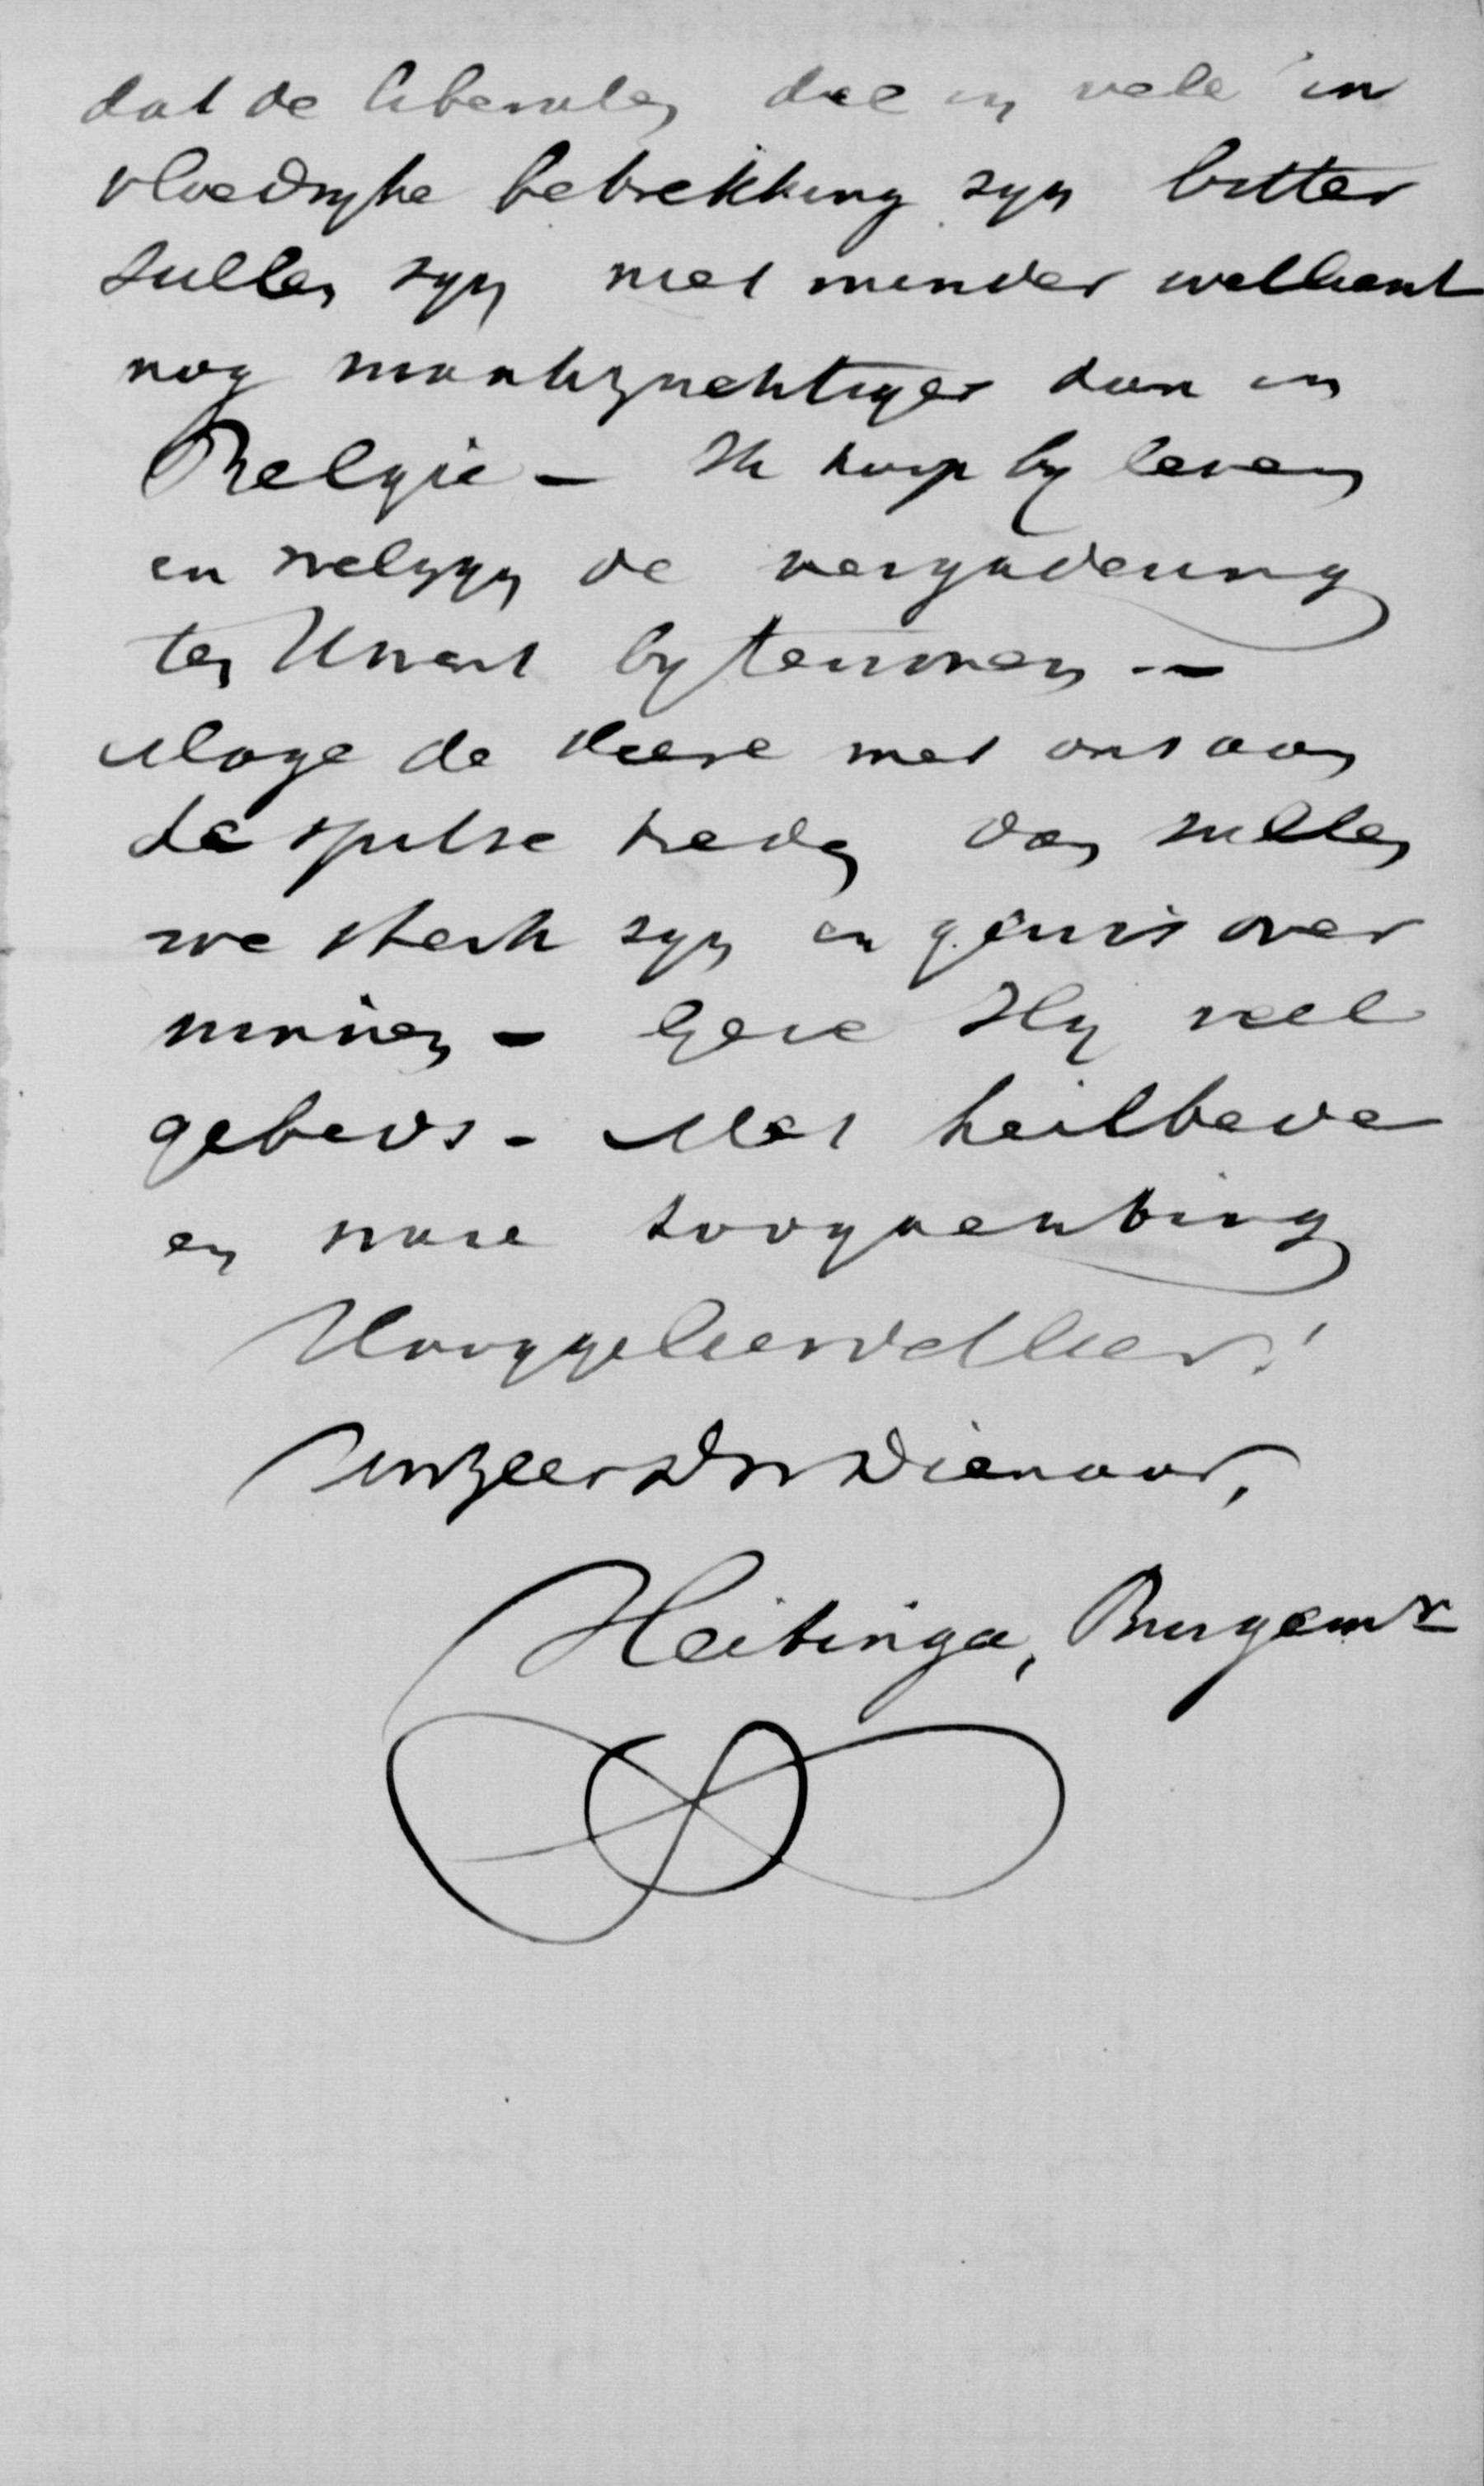 dat de liberalen die in vele in
vloedryke betrekking zyn bitter
zullen zyn niet minder wellicht
nog maar
Belgie - Ik hoop by leven
en welzyn de vergadering
te Utrecht by te wonen -
Moge de Heere met ons aan
de spitse treden dan zullen
we sterk zyn en gewis over
winnen - Geve Hy veel
gebeds - Met heilbede
en ware hoogachting
Hooggeleerde Heer!
UwZeerDWDienaar,
Heibinga, Burgemr